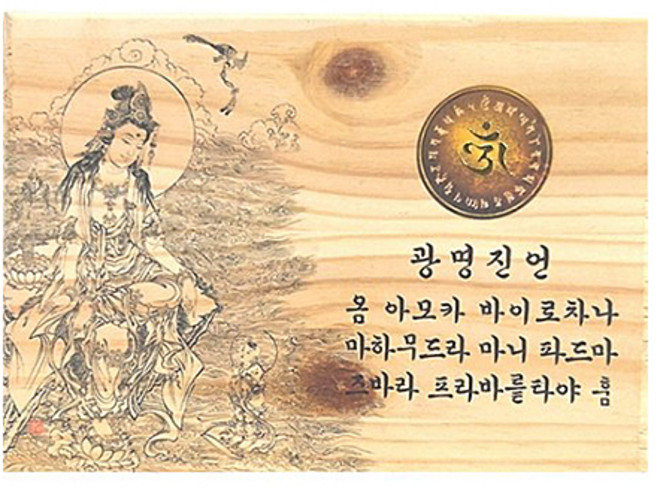 광명진언
옴 아모카 바이로차나
마하무드라 마니 파드마
즈바라 프라바를타야 훔